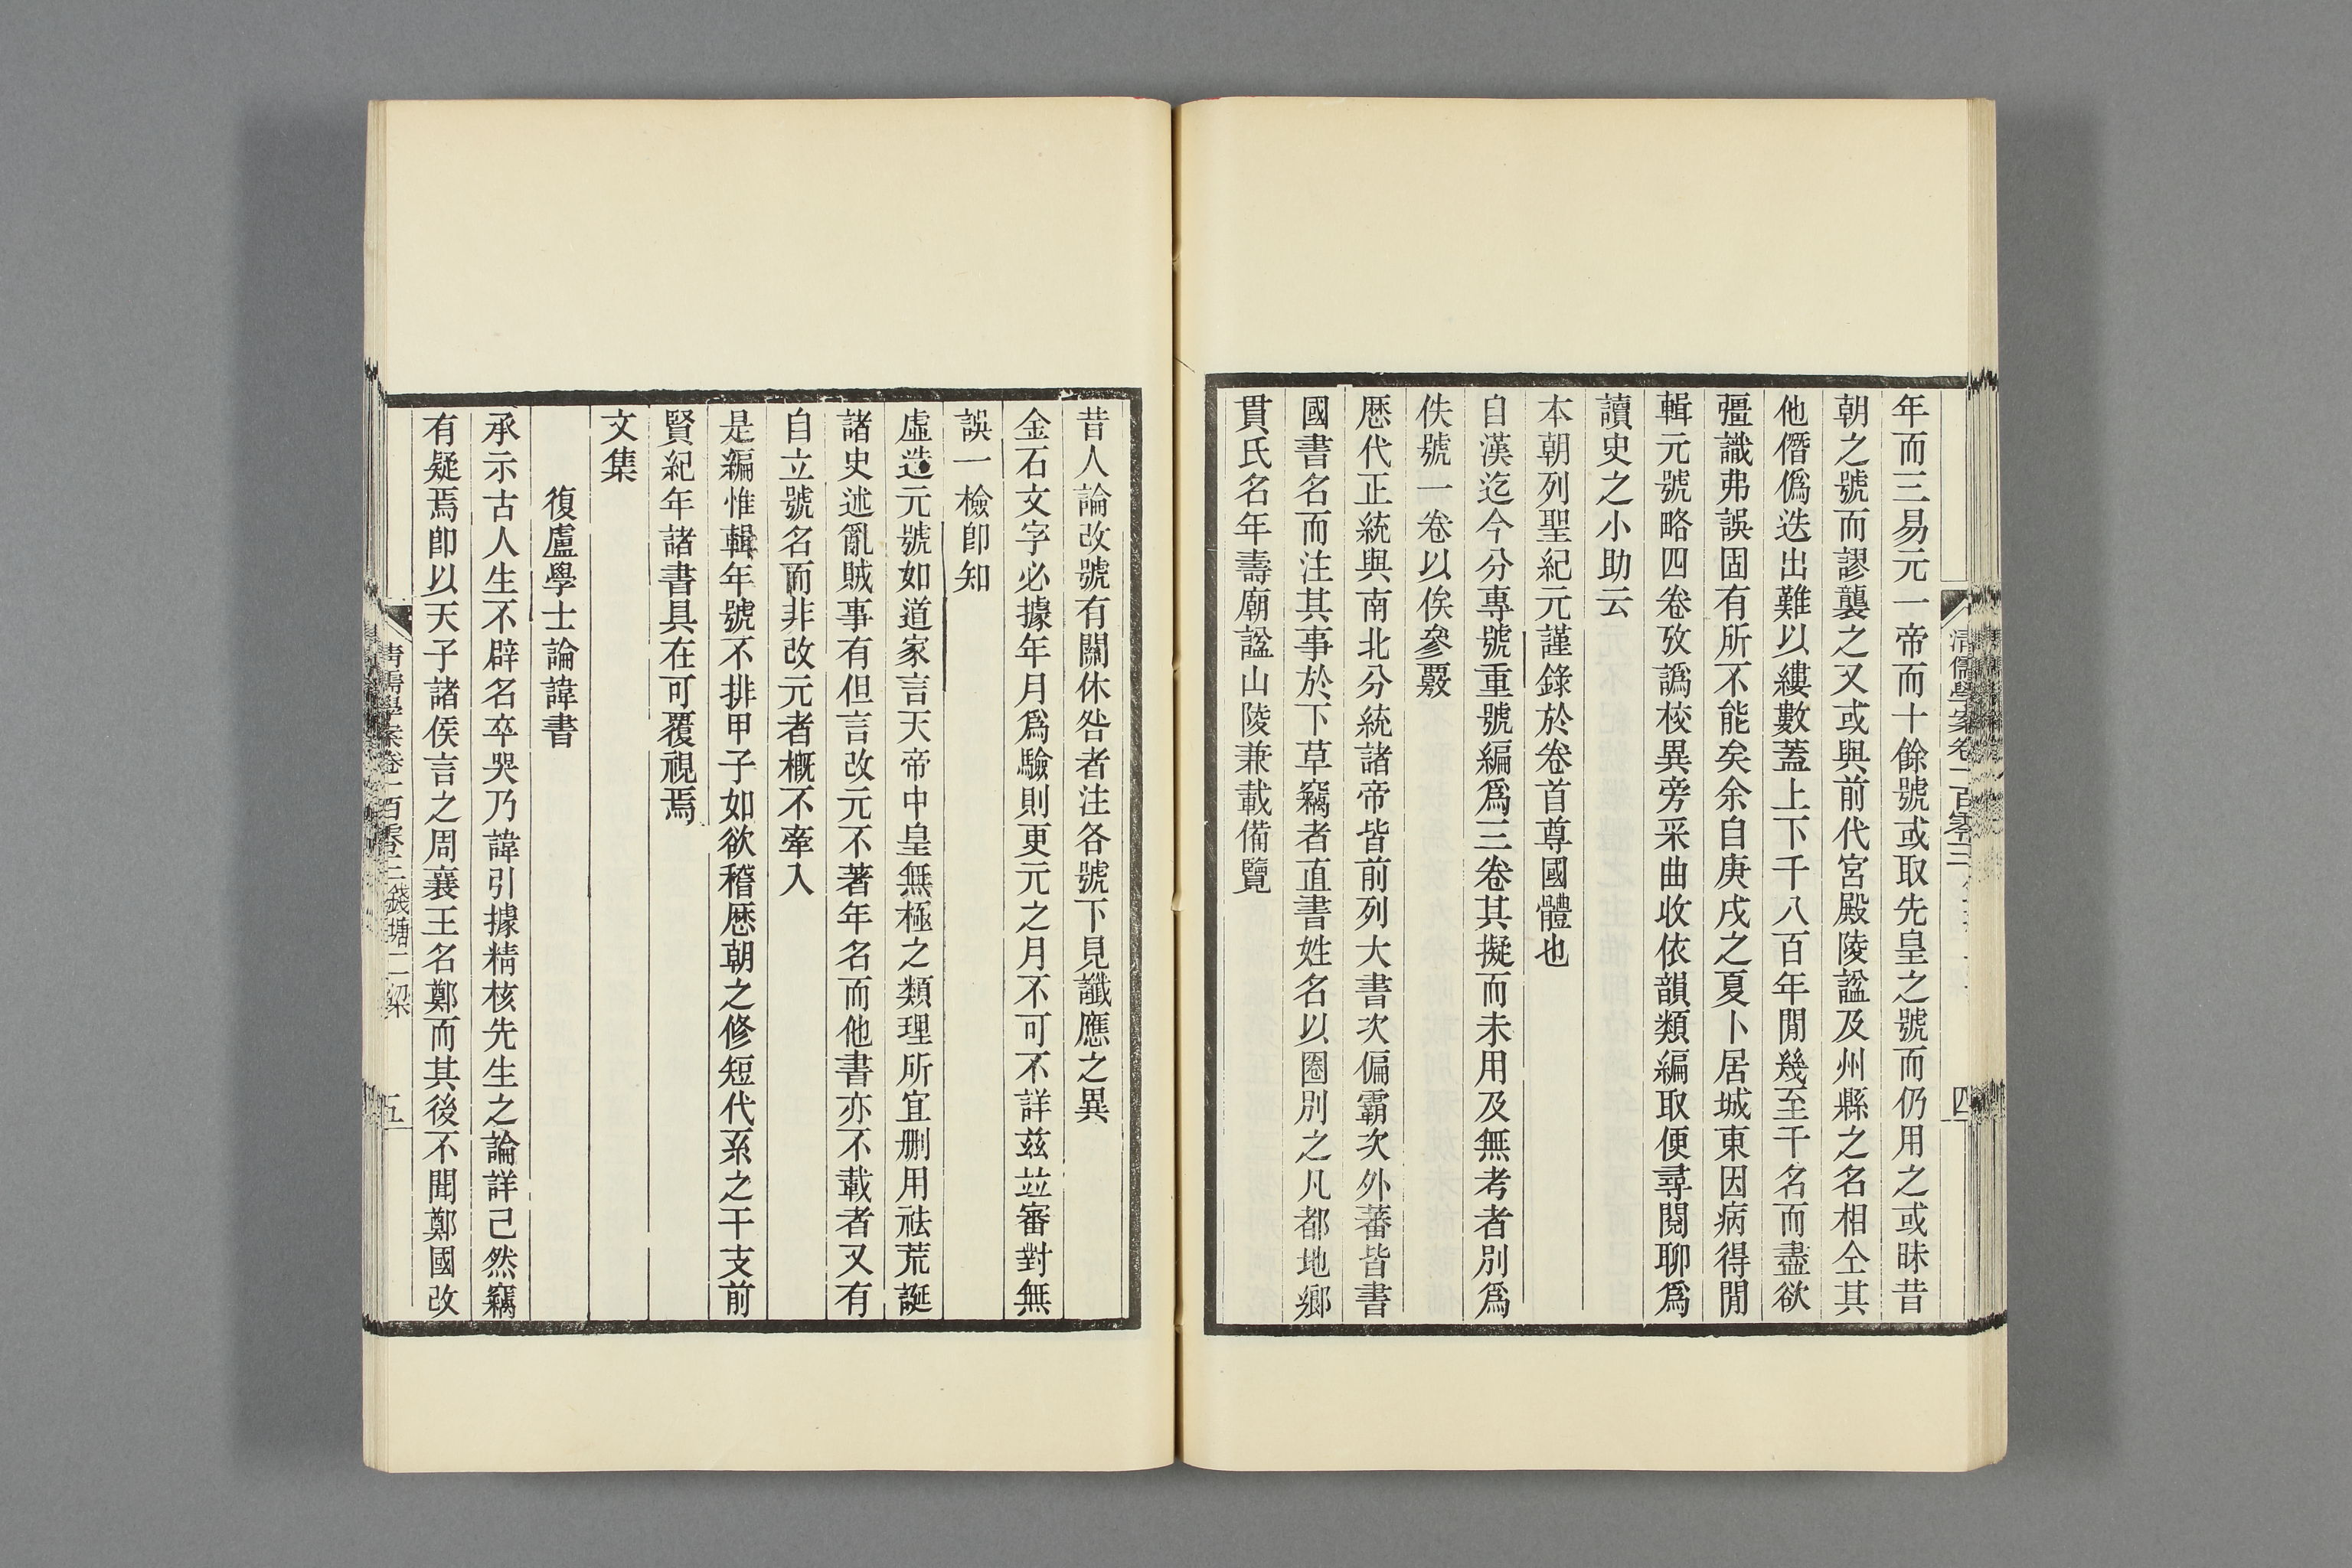 年而三易元一帝而十餘號或取先皇之號而仍用之或昧昔
朝之號而謬襲之又或與前代宮殿陵諡及州縣之名相仝其
他僭僞迭出難以縷數蓋上下千八百年閒幾至千名而盡欲
彊識弗誤固有所不能矣余自庚戌之夏卜居城東因病得閒
輯元號略四卷攷譌校異旁采曲收依韻類編取便尋閱聊爲
讀史之小助云
本朝列聖紀元謹錄於卷首尊國體也
自漢迄今分專號重號編爲三卷其擬而未用及無考者別爲
佚號一卷以俟參覈
歷代正統與南北分統諸帝皆前列大書次偏霸次外蕃皆書
國書名而注其事於下草竊者直書姓名以圈別之凡都地鄉
貫氏名年壽廟諡山陵兼載備覽
清儒學案卷一百零三
四
昔人論改號有關休咎者注各號下見讖應之異
金石文字必據年月爲驗則更元之月不可不詳茲竝審對無
誤一檢卽知
虛造元號如道家言天帝中皇無極之類理所宜刪用祛荒誕
諸史述亂賊事有但言改元不著年名而他書亦不載者又有
自立號名而非改元者概不牽入
是編惟輯年號不排甲子如欲稽歷朝之修短代系之干支前
賢紀年諸書具在可覆視焉
文集
復盧學士論諱書
承示古人生不辟名卒哭乃諱引據精核先生之論詳己然竊
有疑焉卽以天子諸侯言之周襄王名鄭而其後不聞鄭國改
清儒學案卷一百零三 錢塘二梁
五